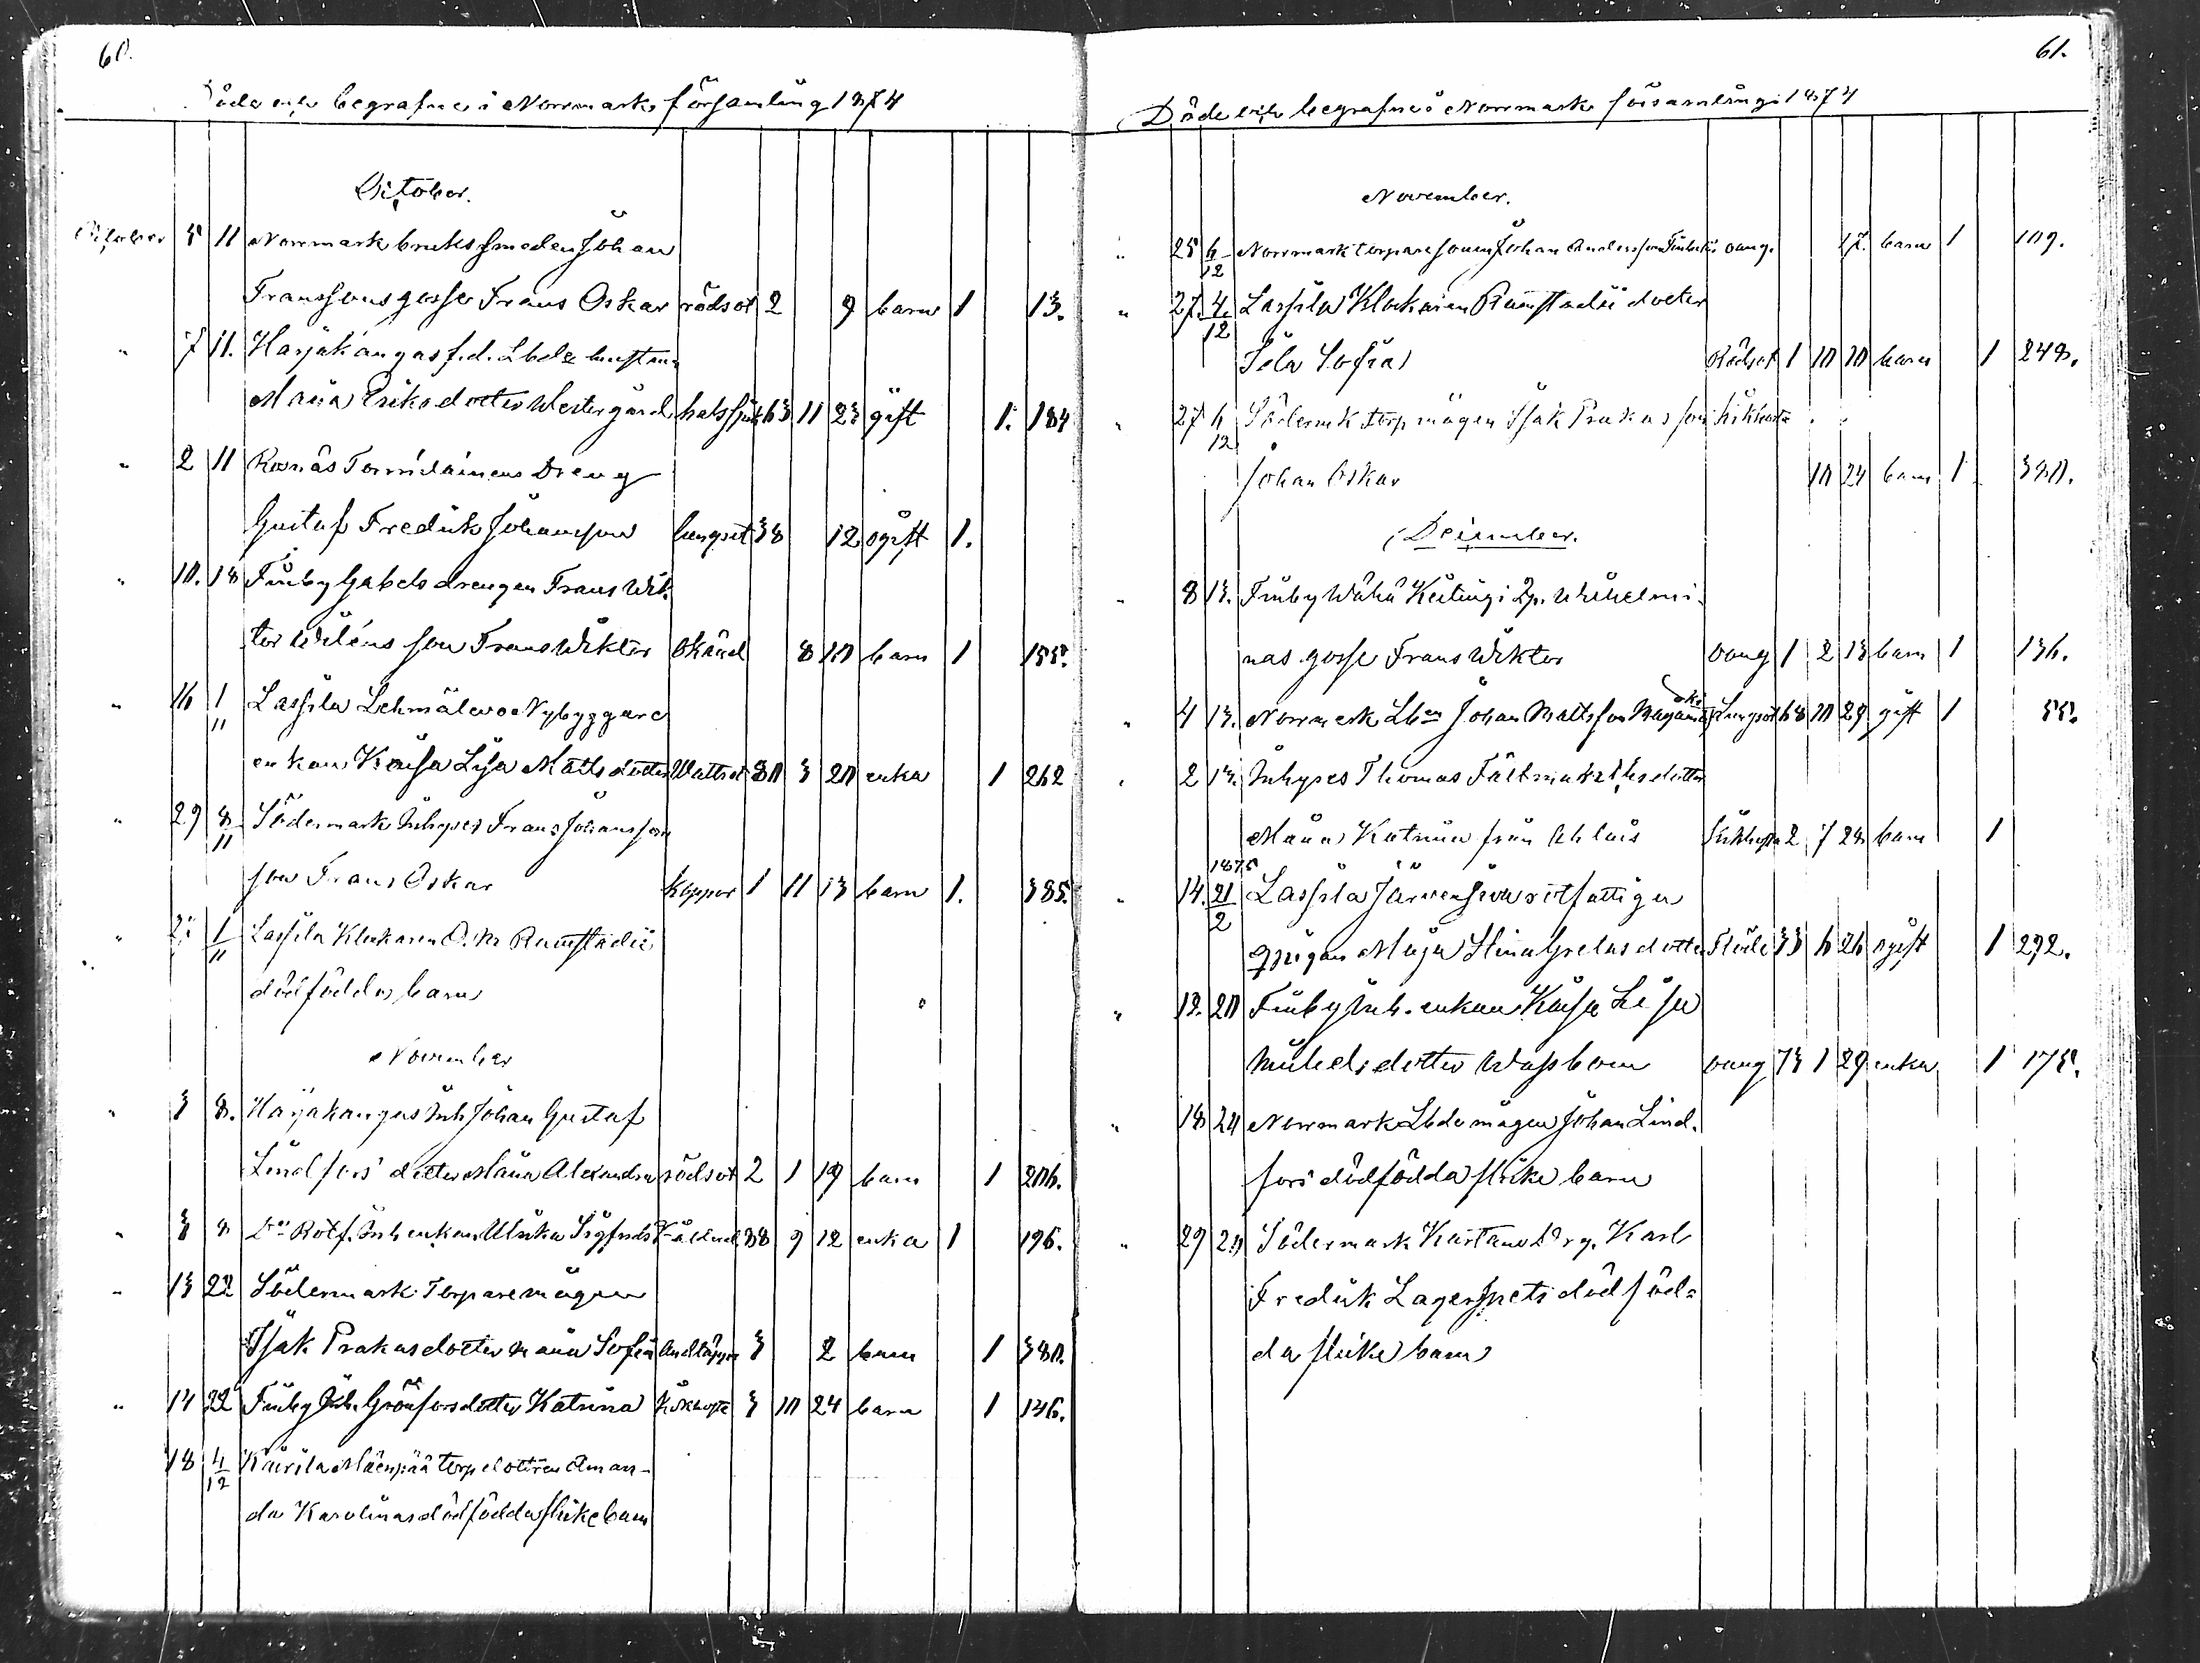 60.
Döde och begrafne i Norrmarks församling 1874
October.
October 5 11 Norrmark bruks smeden Johan
Franssons gosse Frans Oskar rödsot 2 9 barn 1 13.
" 7 11. Harjakangas f.d. Lbde hustrun
Maria Eriksdotter Westergård halssjuk 63 11 23 gift 1. 184
" 2 11 Rosnäs Torrilainens Dreng
Gustaf Fredrik Johansson lungsot 38 12 ogift 1.
" 10. 18 Finby Gabels drengen Frans Wik-
tor Wiléns son Frans Wiktor okänd 8 10 barn 1 155.
" 16 1/11 Lassila Lehmälewo Nybyggare
enkan Kaisa Lisa Mattsdotter Wattsot 80 3 20 enka 1 262
" 29 8/11 Södermark Inhyses Frans Johansson
son Frans Oskar koppor 1 11 13 barn 1. 385.
" 1/11 Lassila Klockaren O. M. Ramstadii
dödfödda barn
November
" 3 8. Harjakangas Inh Johan Gustaf
Lindfors' dotter Maria Alexandra rödsot 2 1 19 barn 1 206.
" 3 8 Do Rotf. Inh enkan Ulrika Sigfrids 88 9 12 enka 1 196.
" 13 22 Södermark Torparemågen
Isak Prakas dotter Maria Sofia 3 2 barn 1 380.
" 14 22 Finby Inh. Grönfors dotter Katrina Kikhosta 3 10 24 barn 1 136.
18 4/12 Kairila Mäenpää torp dottren Aman-
da Karolinas dödfödda flickebarn
61.
Döde och begrafne i Norrmarks församling 1874
November.
" 25 6/12 Norrmark torparesonen Johan Andersson oang. 17. barn 1 109.
" 27. 4/12 Lassila Klockaren Ramstadii dotter
Ida Sofia Rödsot 1 10 10 barn 1 248.
" 27 6/12 Södermk torp mågen Isak Prakas son kikhosta
Johan Oskar 10 24 barn 1 380.
December.
" 8 13. Finby Wähä Keitingi Wilhelmi-
nas gosse Frans Wiktor oang 1 2 13 barn 1 136.
" 4 13. Norrmark Lbn Johan Mattsson Lungsot 68 10 29 gift 1 55.
" 2 13. Inhyses Thomas Fältmarks dotter
Maria Katrina från Kikhosta 2 7 28 barn 1
1875
" 14. 21/2 Lassila Järvensivu rotfattiga
pigan Maja Stina Grelsdotter Flöde 33 6 26 ogift 1 292.
" 13. 20 Finby Inh. enkan Kaisa Lisa
Mickelsdotter Wassbom oang 73 1 29 enka 1 175.
" 18 24 Norrmark Lbde mågen Johan Lind-
fors dödfödda flicke barn
" 29 Södermark Kartano Karl
Fredrik Lagerspets dödföd-
da flicke barn